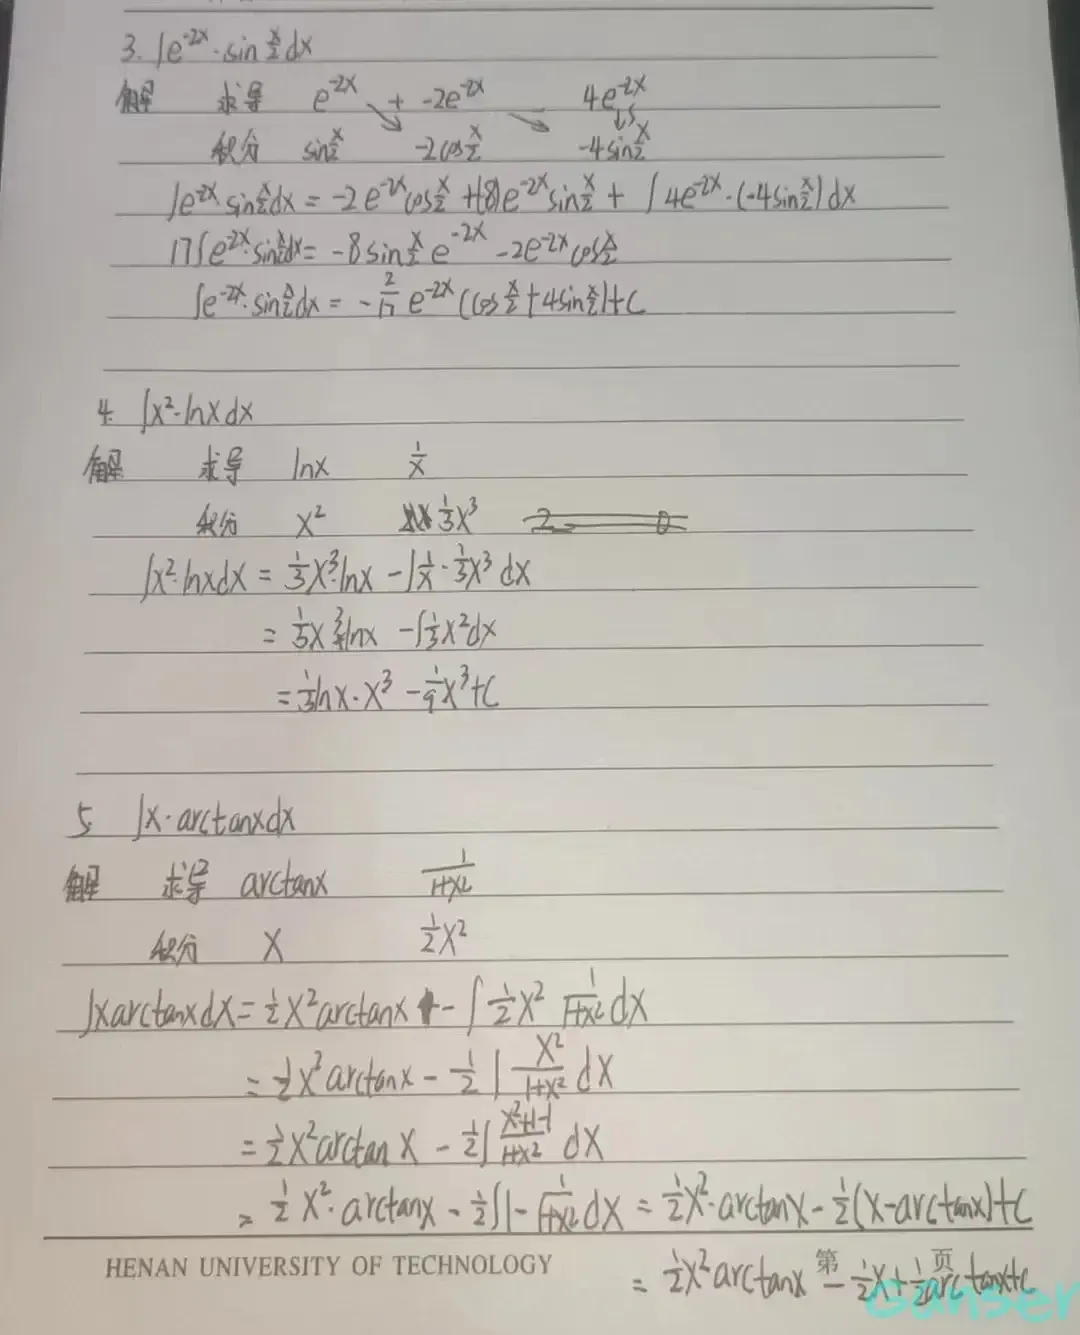 3. ∫e^-2x · sin x/2 dx
解 求导 e^-2x + -2e^-2x - 4e^-2x
积分 sin x/2 -2cos x/2 -4sin x/2
∫e^-2x sin x/2 dx = -2e^-2x cos x/2 +(-8)e^-2x sin x/2 + ∫4e^-2x · (-4sin x/2) dx
17∫e^-2x · sin x/2 dx = -8 sin x/2 e^-2x - 2e^-2x cos x/2
∫e^-2x · sin x/2 dx = - 2/17 e^-2x (cos x/2 + 4sin x/2)+C
4. ∫x²·lnx dx
解 求导 lnx 1/x
积分 x² 1/3 x³
∫x²·lnx dx = 1/3 x³·lnx - ∫1/x · 1/3 x³ dx
= 1/3 x³ lnx - ∫1/3 x² dx
= 1/3 lnx · x³ - 1/9 x³ + C
5. ∫x·arctanx dx
解 求导 arctanx 1/(1+x²)
积分 x 1/2 x²
∫x arctanx dx = 1/2 x² arctanx - ∫ 1/2 x² 1/(1+x²) dx
= 1/2 x² arctanx - 1/2 ∫ x²/(1+x²) dx
= 1/2 x² arctan x - 1/2 ∫ (x²+1-1)/(1+x²) dx
= 1/2 x² · arctanx - 1/2 ∫1 - 1/(1+x²) dx = 1/2 x² · arctanx - 1/2 (x-arctanx)+C
HENAN UNIVERSITY OF TECHNOLOGY 第 页
= 1/2 x² arctanx - 1/2 x + 1/2 arctanx+C
Ganser